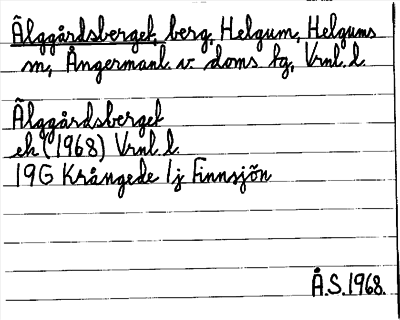 Älggårdsberget, berg, Helgum, Helgums
sn, Ångermanl. v. doms. fg, Vrnl. l.
Älggårdsberget
ek (1968) Vrnl. l.
19G Krångede 1j Finnsjön
Å.S. 1968.